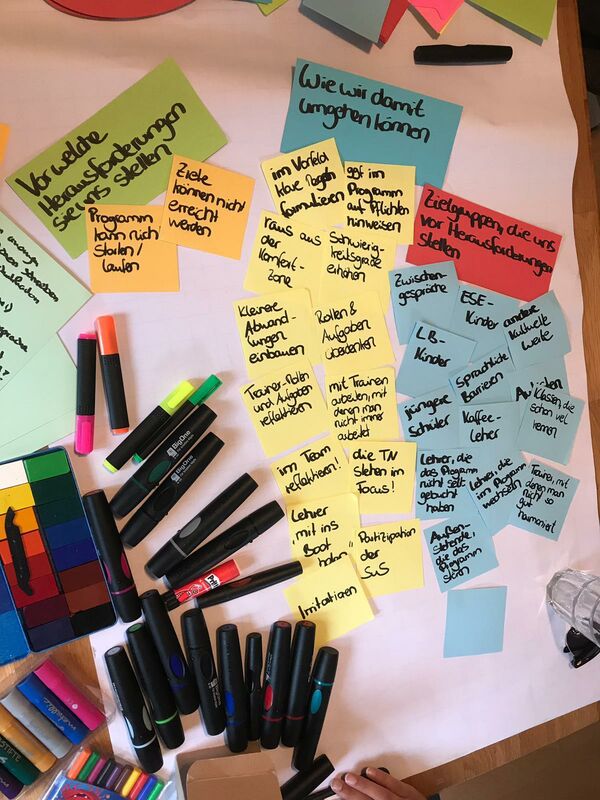 Vor welche
Herausforderungen
sie uns stellen
Programm
kann nicht
starten/
laufen
Ziele
können nicht
erreicht
werden
Wie wir damit
umgehen können
im Vorfeld
klare Regeln
formulieren
ggf im
Programm
auf Pflichten
hinweisen
raus aus
der
Komfort-
zone
Schwierig-
keitsgrade
erhöhen
Kleinere
Abwand-
lungen
einbauen
Rollen &
Aufgaben
überdenken
Trainer-Rollen
und Aufgaben
reflektieren
mit Trainern
arbeiten, mit
denen man
nicht immer
arbeitet
im Team
reflektieren!
die TN
stehen im
Focus!
Lehrer
mit ins
Boot
holen
Partizipation
der
SuS
Irritationen
Zielgruppen, die uns
vor Herausforderungen
stellen
Zwischen-
gespräche
ESE-
Kinder
andere
Kulturelle
Werte
LB-
Kinder
Sprachliche
Barrieren
jüngere
Schüler
Kaffee-
Lehrer
Klassen, die
schon viel
kennen
Lehrer, die
das Programm
nicht selbst
gebucht
haben
Lehrer, die
im Programm
wechseln
Trainer, mit
denen man
nicht so
gut
harmoniert
Außen-
stehende,
die das
Programm
stören
BigOne
BigOne
Pritt